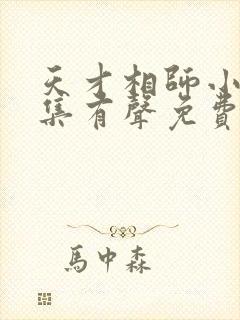 天才相師小
集有聲免費
馬中森